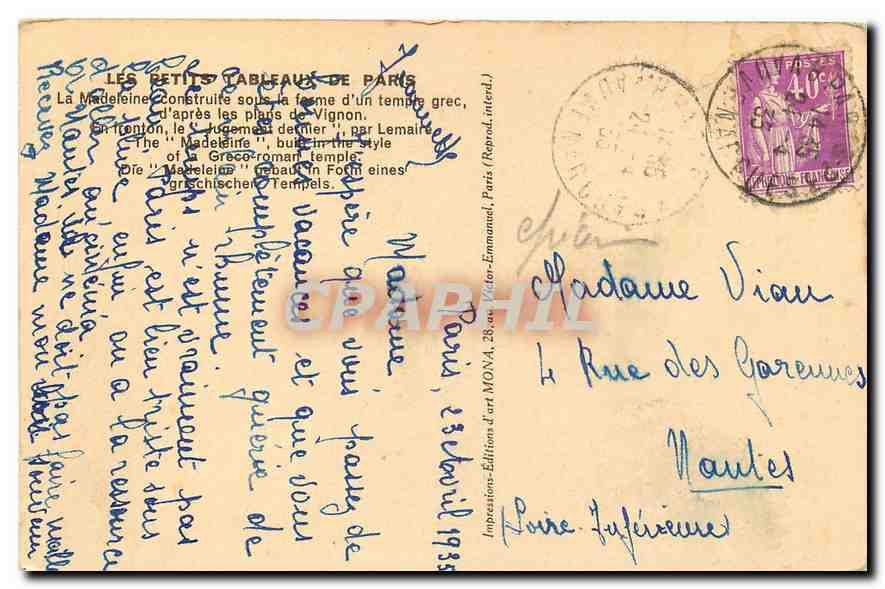 LES PETITS TABLEAUX DE PARIS
La Madeleine, construite sous la forme d'un temple grec,
d'après les plans de Vignon.
En fronton, le "Jugement dernier", par Lemaire.
The "Madeleine", built in the style
of a Greco-roman temple.
Die "Madeleine" gebaut in Form eines
grischischen Tempels.
Paris, 23 avril 1935
Madame
J'espère que vous passez de
vacances et que vous
complètement guérie de
rhume.
temps n'est vraiment pas
Paris est bien triste sous
la pluie enfin on a la ressource
d'aller au cinéma
Nantes, il ne doit pas faire
Recevez Madame mon bon souvenir
Impressions-Editions d'art MONA, 28, av. Victor-Emmanuel, Paris (Reprod. interd.)
POSTES
40c
REPUBLIQUE FRANÇAISE
Madame Vian
4 Rue des Garennes
Nantes
Loire-Inférieure
CPAPHIL